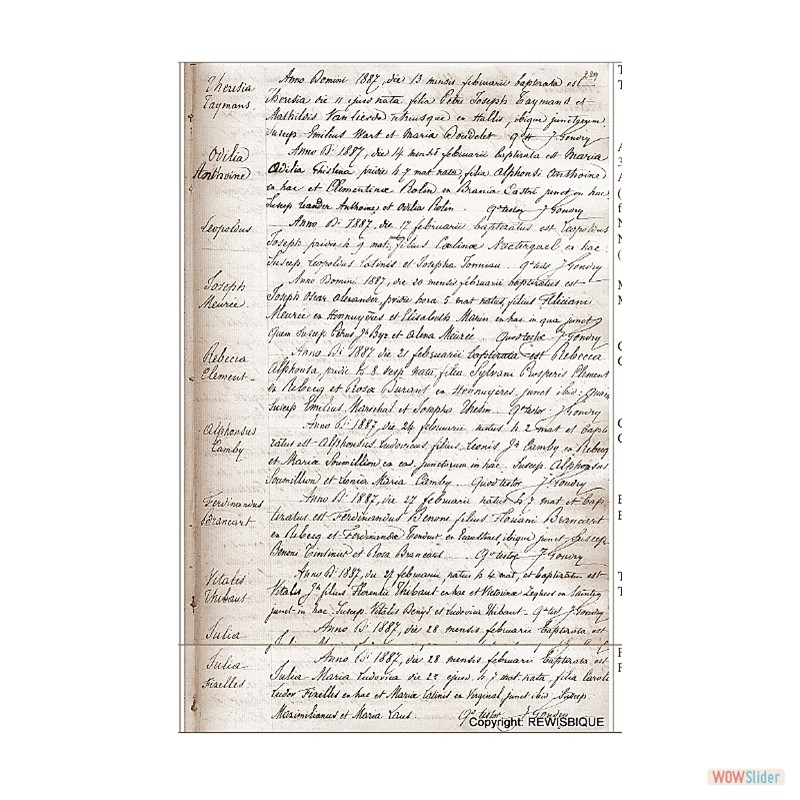 229
Theresia Taymans
Anno Domini 1887, die 13 mensis februarii baptizata est
Theresia die 11 ejus nata, filia Petri Joseph Taymans et
Mathildis Vanlierde utriusque ex Hallis, ibique junctorum
Suscep. Emilius Wart et Maria J. Gondry
Odilia Anthoine
Anno Di 1887, die 14 mensis februarii baptizata est Maria
Odilia Ghislina pridie h 7 mat nata, filia Alphonsi Anthoine
ex hac et Clementinæ Rolin ex Brania Castri junct in hac
Suscep Leander Anthoine et Odilia Rolin. Qd testor J. Gondry
Leopoldus
Anno Di 1887, die 17 februarii baptizatus est Leopoldus
Joseph pridie h 9 mat. natus filius Cælinæ Nactergael ex hac.
Suscep. Leopoldus Latinis et Josepha Tonniau. Qd testor J. Gondry
Joseph Meurée.
Anno Domini 1887, die 20 mensis februarii baptizatus est
Joseph Oscar Alexander, pridie hora 5 mat natus, filius Feliciani
Meurée ex Hennuyères et Elisabeth Marin ex hac in qua junct
quem Suscep Petrus Jh et Alena Meurée. Quod testor J. Gondry
Rebecca Clement
Anno Di 1887 die 21 februarii baptizata est Rebecca
Alphonsa, pridie h 8 vesp nata, filia Sylvani Prosperis Clement
ex Rebecq et Rosæ Durant ex Hennuyères junct ibid. Quam
Suscep Emilius Marechal et Josepha Thelin. Qd testor J. Gondry
Alphonsus Camby
Anno Di 1887, die 24 februarii natus h 2 mat et bapti-
zatus est Alphonsus Ludovicus filius Leonis Jh Camby ex Rebecq
et Mariæ Soumillion ex ead. junctorum in hac. Suscep. Alphonsus
Soumillion et Leonia Maria Camby. Quod testor J. Gondry
Ferdinandus Brancart
Anno Di 1887, die 27 februarii natus h 7 mat et bap-
tizatus est Ferdinandus Benoni filius Floriani Brancart
ex Rebecq et Ferdinandæ Tondeur ex Ecaussines, ibique junct. Suscep.
Benoni Tintinier et Rosa Brancart. Qd testor J. Gondry
Vitalis Thibaut
Anno Di 1887, die 27 februarii, natus h 4 mat, et baptizatus est
Vitalis Jh filius Florentii Thibaut ex hac et Victorinæ Leghers ex
junct in hac. Suscep. Vitalis et Ludovica Thibaut. Qd test J. Gondry
Julia
Anno Di 1887, die 28 mensis februarii baptizata est
Julia Fixelles
Anno Di 1887, die 28 mensis februarii baptizata est
Julia Maria Ludovica die 27 ejusd. h 7 mat nata, filia Caroli
Fixelles ex hac et Mariæ Latinis ex Virginal junct ibid. Suscep.
Maximilianus et Maria Laus. Qd testor J. Gondry
Copyright: REWISBIQUE
WOWSlider